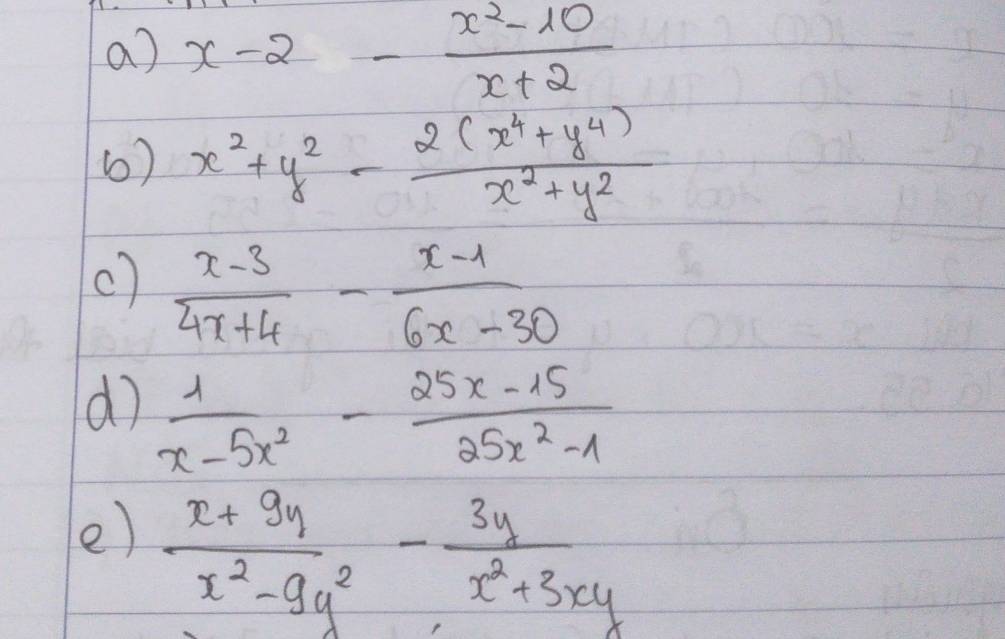 a) x - 2 - \frac{x^2 - 10}{x + 2}
b) x^2 + y^2 - \frac{2(x^4 + y^4)}{x^2 + y^2}
c) \frac{x - 3}{4x + 4} - \frac{x - 1}{6x - 30}
d) \frac{1}{x - 5x^2} - \frac{25x - 15}{25x^2 - 1}
e) \frac{x + 9y}{x^2 - 9y^2} - \frac{3y}{x^2 + 3xy}